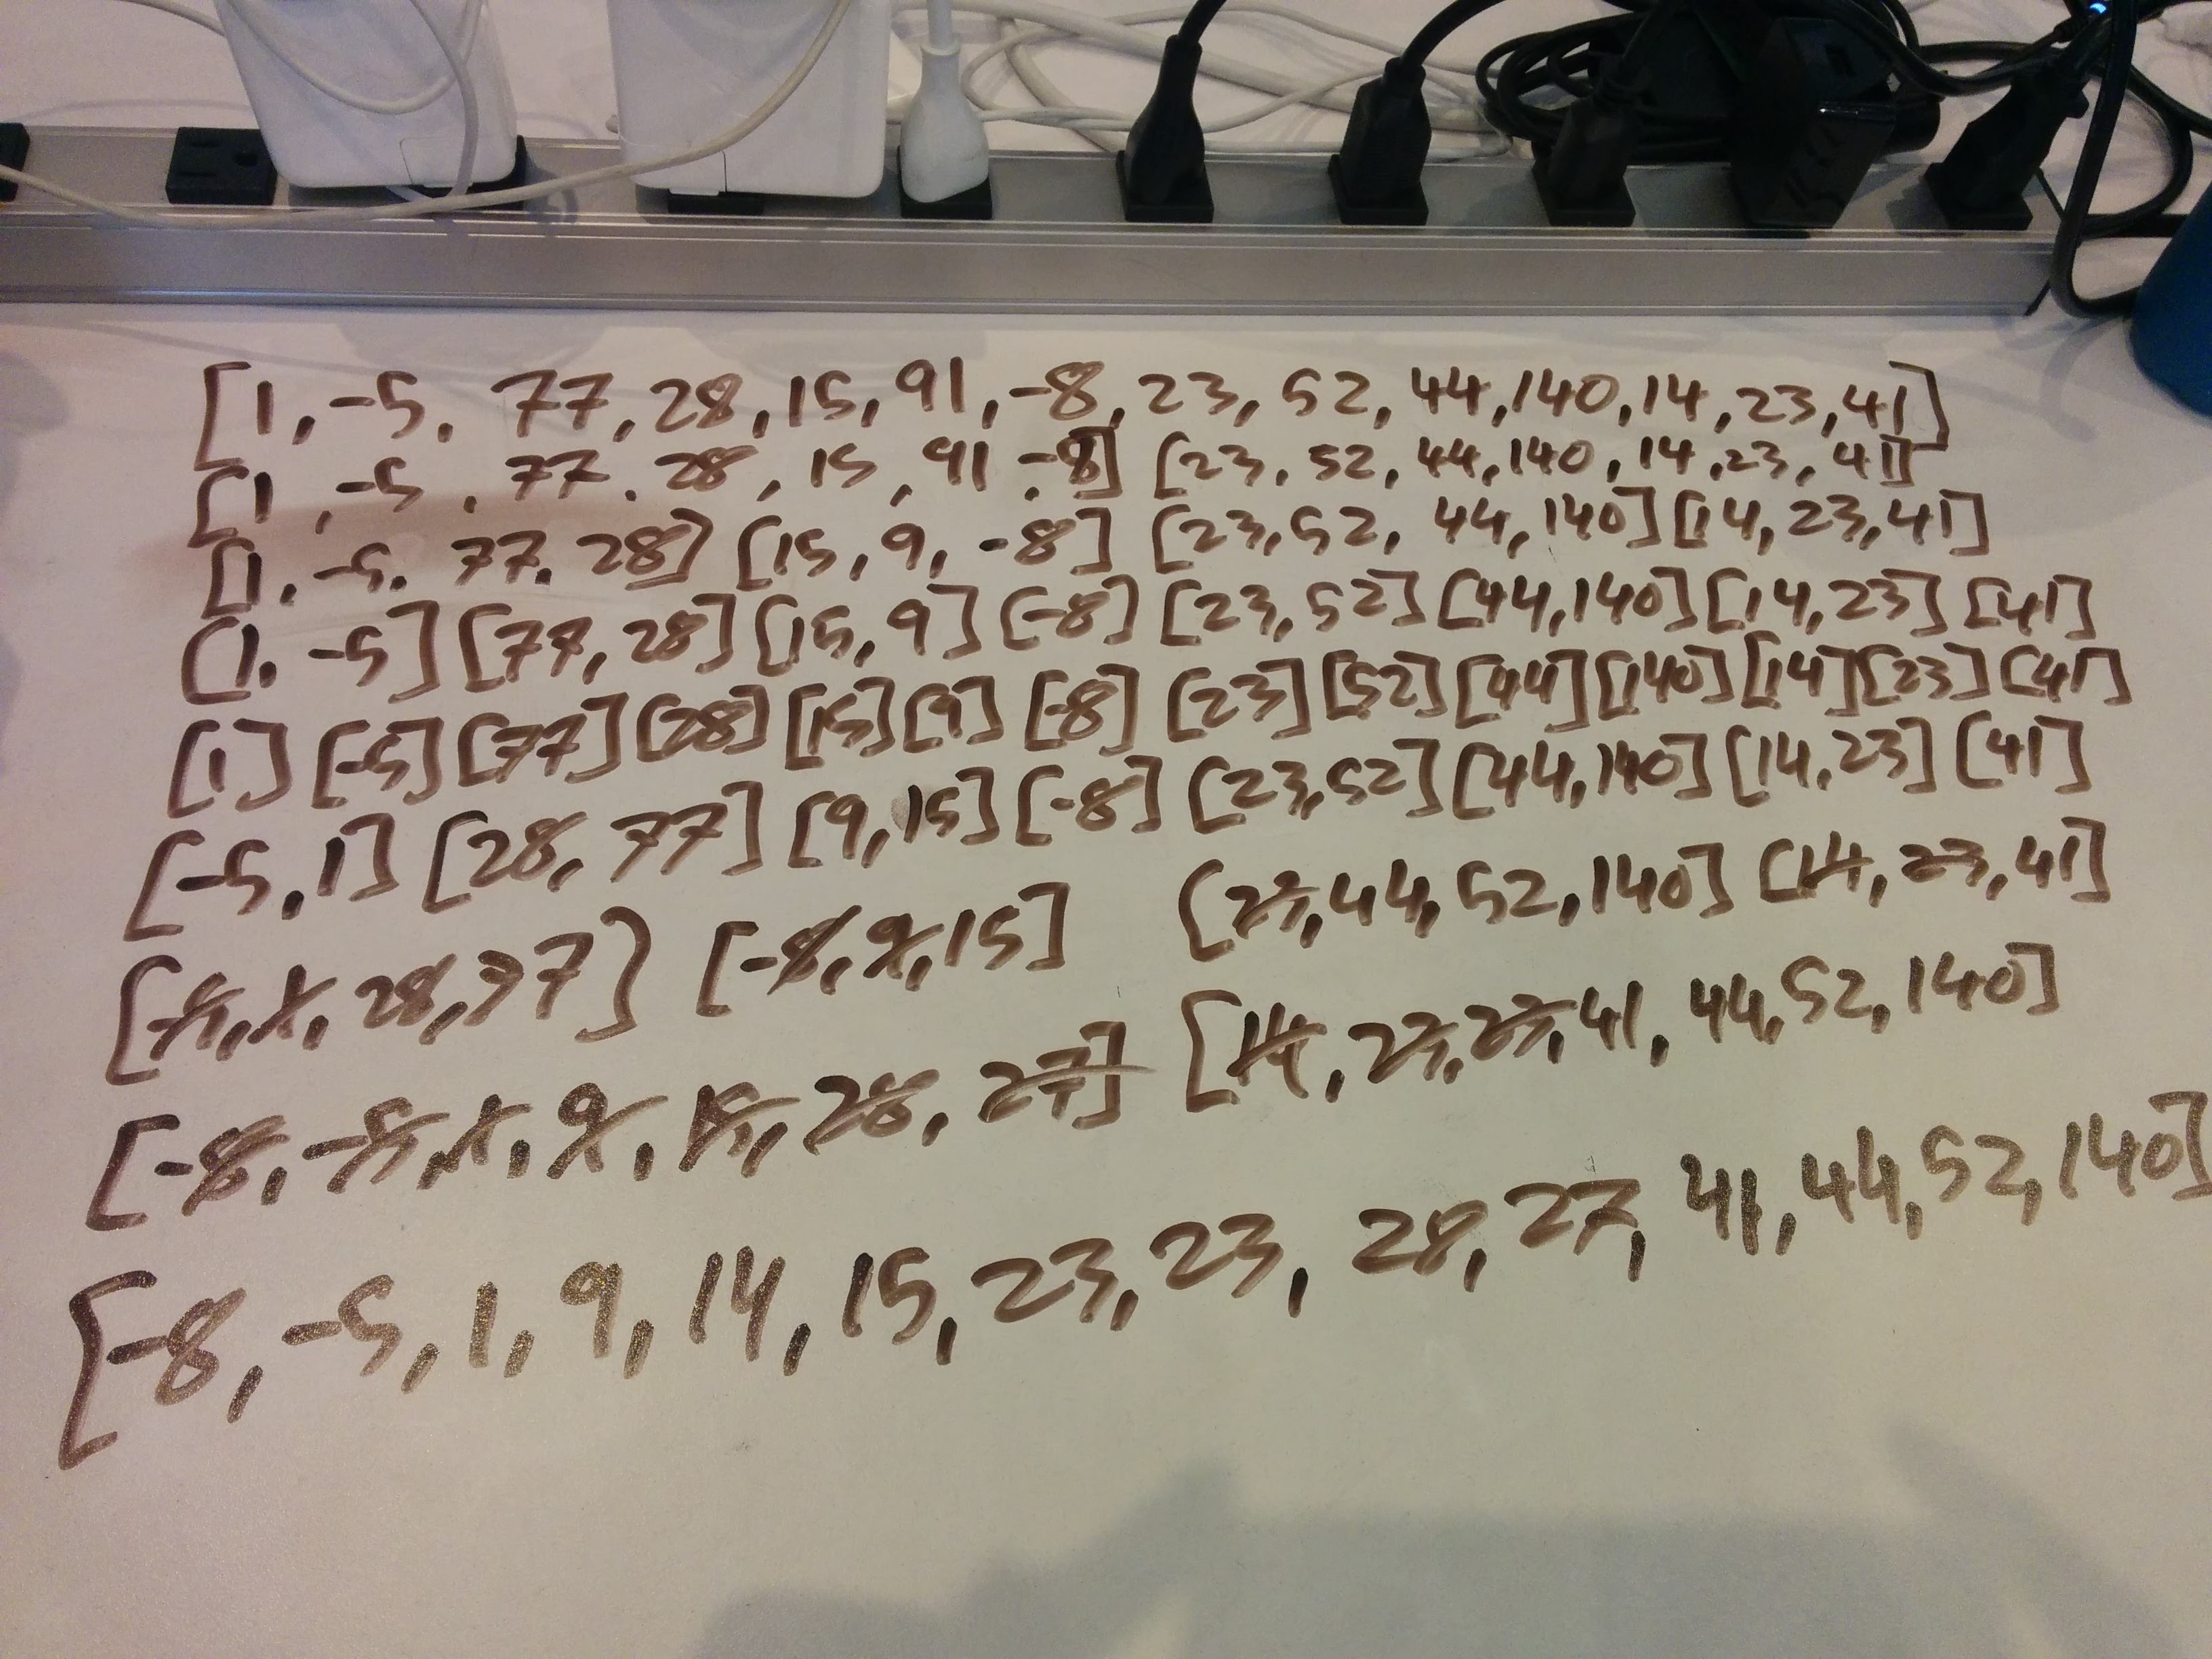 [1, -5, 77, 28, 15, 91, -8, 23, 52, 44, 140, 14, 23, 41]
[1, -5, 77, 28, 15, 91, -8] [23, 52, 44, 140, 14, 23, 41]
[1, -5, 77, 28] [15, 9, -8] [23, 52, 44, 140] [14, 23, 41]
[1, -5] [77, 28] [15, 9] [-8] [23, 52] [44, 140] [14, 23] [41]
[1] [-5] [77] [28] [15] [9] [-8] [23] [52] [44] [140] [14] [23] [41]
[-5, 1] [28, 77] [9, 15] [-8] [23, 52] [44, 140] [14, 23] [41]
[-5, 1, 28, 77] [-8, 9, 15] [23, 44, 52, 140] [14, 23, 41]
[-8, -5, 1, 9, 15, 28, 27] [14, 23, 23, 41, 44, 52, 140]
[-8, -5, 1, 9, 14, 15, 23, 23, 28, 27, 41, 44, 52, 140]